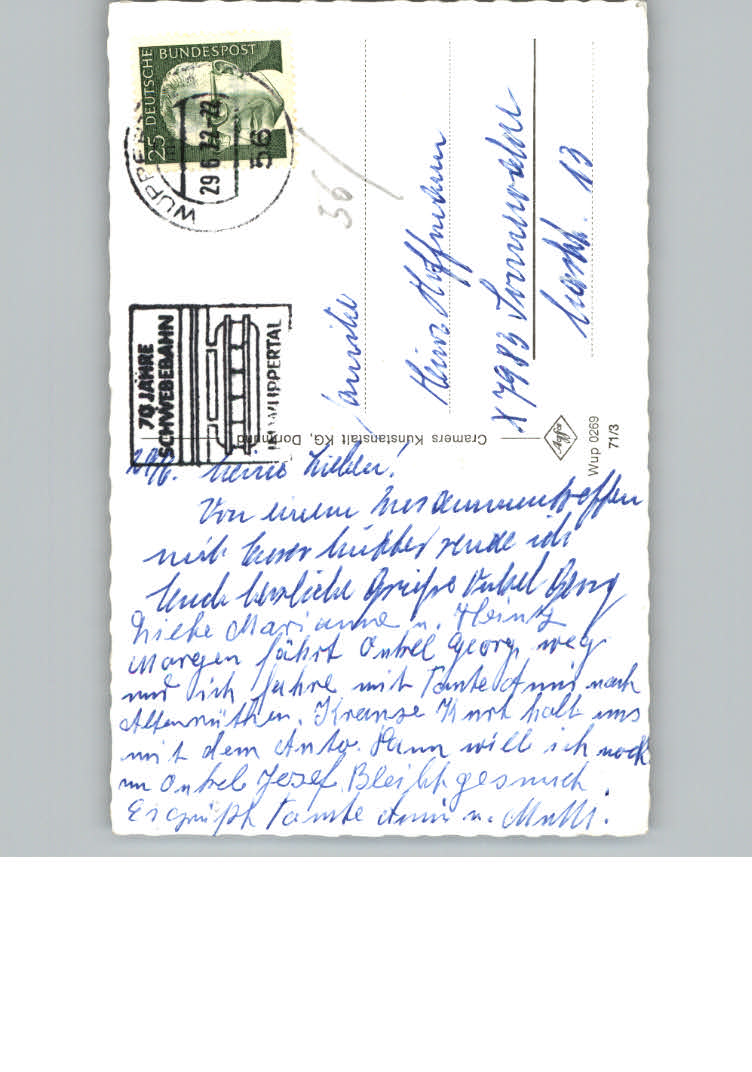 DEUTSCHE BUNDESPOST
25
WUPPERTAL
29.6.72-22
56
70 JAHRE
SCHWEBEBAHN
IN WUPPERTAL
36
Familie
Heinz Hoffmann
X 7983 Sonnewalde
13
Cramers Kunstanstalt KG, Dortmund
Agfa
Wup 0269
71/3
29/6. Meine Lieben!
Von einem Zusammentreffen
mit Eurer Mutter sende ich
Euch herzliche Grüße Onkel Georg
Liebe Marianne u. Heinz
Morgen fährt Onkel Georg weg
und ich fahre mit Tante Anni nach
Altenrüthen. Krause Kurt holt uns
mit dem Auto. Dann will ich noch
zu Onkel Josef. Bleibt gesund
Es grüßt Tante Anni u. Mutti.